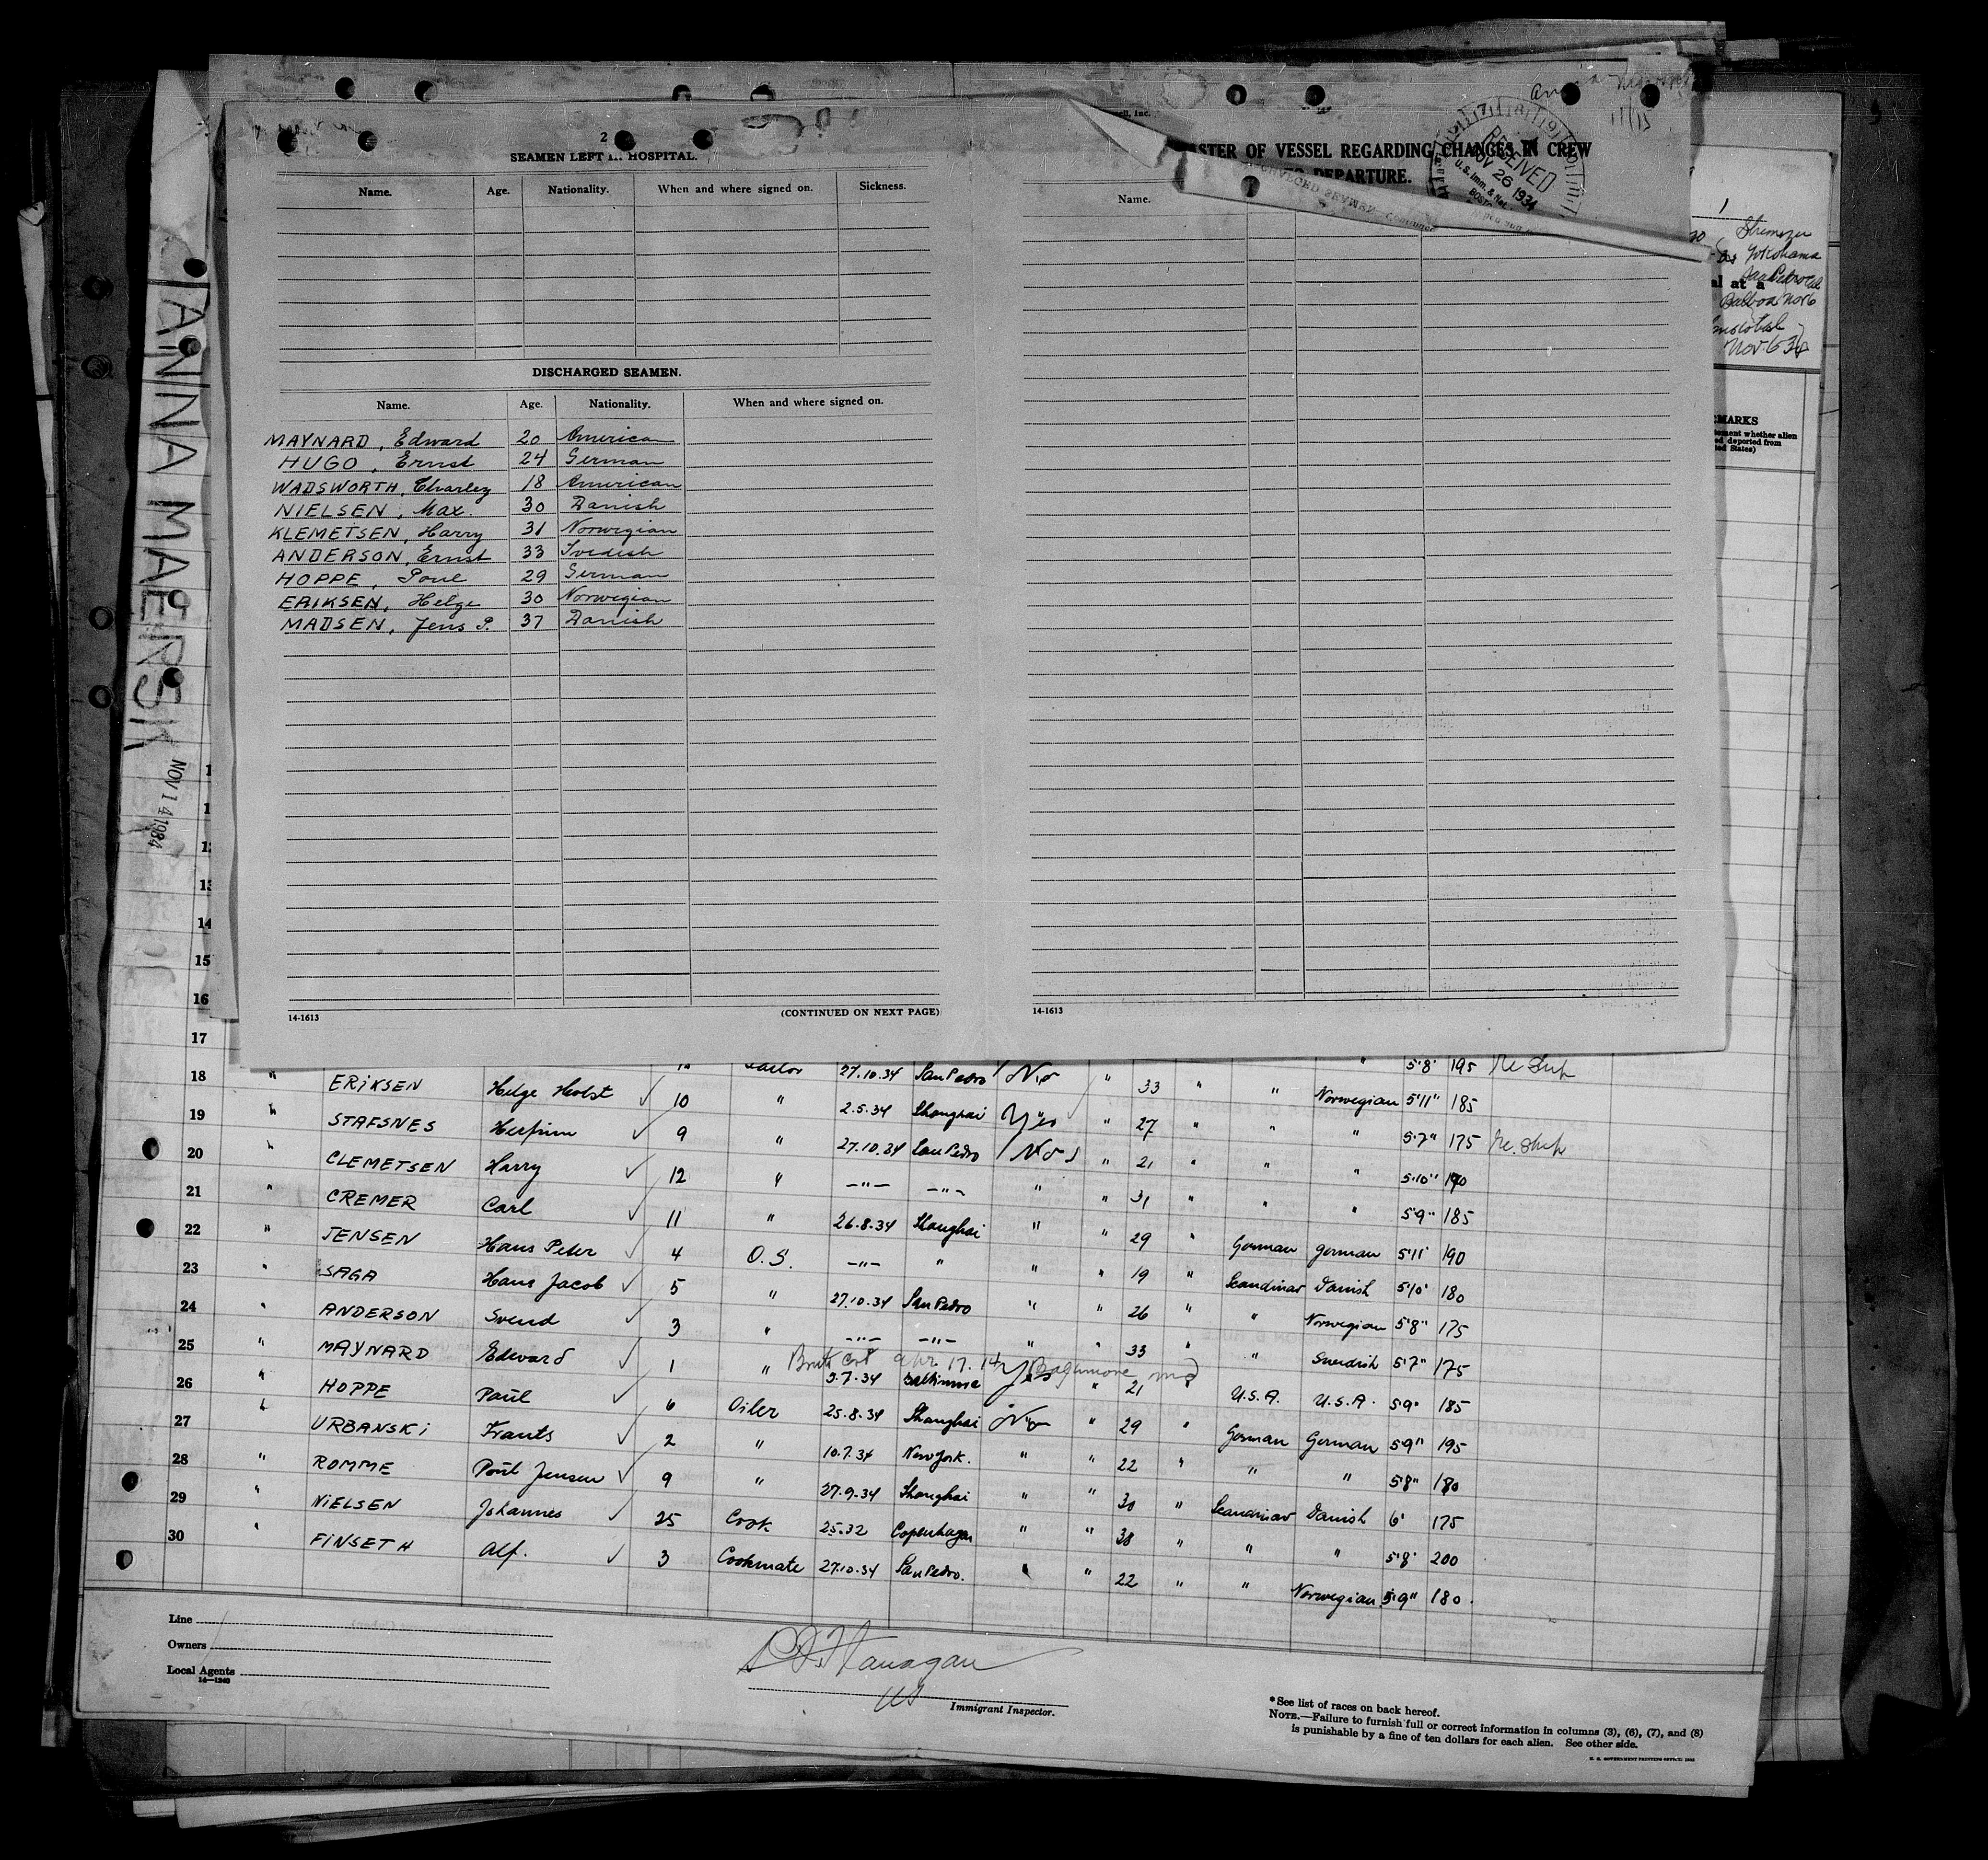 ANNA MAERSK
NOV 14 1934
2
SEAMEN LEFT HOSPITAL.
Name. Age. Nationality. When and where signed on. Sickness.
DISCHARGED SEAMEN.
Name. Age. Nationality. When and where signed on.
MAYNARD, Edward 20 American
HUGO, Ernst 24 German
WADSWORTH, Charley 18 American
NIELSEN, Max. 30 Danish
KLEMETSEN, Harry 31 Norwegian
ANDERSON, Ernst 33 Svedish
HOPPE, Poul 29 German
ERIKSEN, Helge 30 Norwegian
MADSEN, Jens P. 37 Danish
14-1613 (CONTINUED ON NEXT PAGE)
ASTER OF VESSEL REGARDING CHANGES IN CREW
DEPARTURE.
RECEIVED
NOV 26 1934
U.S. Imm. & Nat.
Name.
14-1613
1
Yokohama
San Pedro
al at a
Balboa Nov 6
Cristobal
Nov. 6 34
MARKS
ement whether alien
ed deported from
ted States)
13
14
15
16
17
Sailor 27.10.34 San Pedro No " 33 " " " 5'8" 195
18 " ERIKSEN Helge Holst ✓ 10 " 2.5.34 Shanghai Yes " 27 " " Norwegian 5'11" 185
19 " STAFSNES ✓ 9 " 27.10.34 San Pedro No " 21 " " " 5'7" 175
20 " CLEMETSEN Harry ✓ 12 " —"— —"— " " 31 " " " 5'10" 190
21 " CREMER Carl ✓ 11 " 26.8.34 Shanghai " " 29 " German German 5'9" 185
22 " JENSEN Hans Peter ✓ 4 O.S. —"— " " " 19 " Scandinav Danish 5'11" 190
23 " SAGA Hans Jacob ✓ 5 " 27.10.34 San Pedro " " 26 " " Norwegian 5'10" 180
24 " ANDERSON Svend ✓ 3 " —"— —"— " " 33 " " Swedish 5'8" 175
25 " MAYNARD Edward ✓ 1 " 9.7.34 Baltimore Yes " 21 " U.S.A. U.S.A. 5'7" 175
Birth Cert Apr 17. 14 Baltimore Md
26 " HOPPE Paul ✓ 6 Oiler 25.8.34 Shanghai No " 29 " German German 5'9" 185
27 " URBANSKI Frants ✓ 2 " 10.7.34 New York. " " 22 " " " 5'9" 195
28 " ROMME Poul Jensen ✓ 9 " 27.9.34 Shanghai " " 30 " Scandinav Danish 5'8" 180
29 " NIELSEN Johannes ✓ 25 Cook 25.32 Copenhagen " " 38 " " " 6' 175
30 " FINSETH Alf. ✓ 3 Cookmate 27.10.34 San Pedro. " " 22 " " Norwegian 5'8" 200
5'9" 180.
Line
Owners
Local Agents
14—1240
Flanagan
Immigrant Inspector.
*See list of races on back hereof.
NOTE.—Failure to furnish full or correct information in columns (3), (6), (7), and (8)
is punishable by a fine of ten dollars for each alien. See other side.